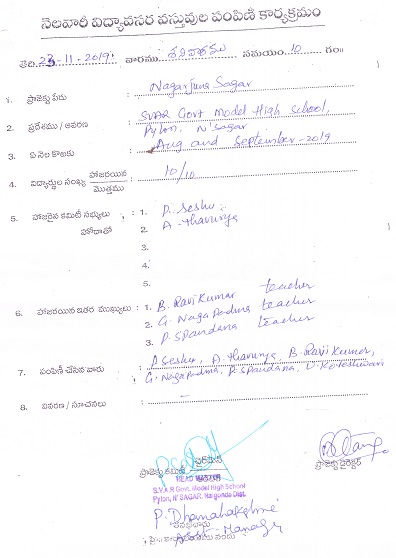 నెలవారీ విద్యావసర వస్తువుల పంపిణి కార్యక్రమం
తేది: 23-11-2019 వారము శనివారము సమయం 10 గం॥
1. ప్రాజెక్టు పేరు : Nagarjuna Sagar
2. ప్రదేశము / ఆవరణ : SVAR Govt Model High School,
Pylon, N'Sagar
3. ఏ నెల కొఱకు : Aug and September-2019
4. విద్యార్థుల సంఖ్య హాజరయిన : 10/10
మొత్తము
5. హాజరైన కమిటీ సభ్యులు : 1. P. Seshu
హోదాతో 2. A-thavurya
3.
4.
5.
6. హాజరయిన ఇతర ముఖ్యులు : 1. B. Ravi Kumar teacher
2. G. Naga Padma teacher
3. P. Spandana teacher
7. పంపిణీ చేసిన వారు : P. Seshu, A. thavurya, B. Ravi Kumar,
G. Naga Padma, P. Spandana, U. Koteshwari
8. వివరణ / సూచనలు : -
ప్రాజెక్టు కమిటీ ఛైర్మెన్ ప్రాజెక్టు డైరెక్టర్
HEAD MASTER
S.V.A.R Govt. Model High School
Pylon, N' SAGAR, Nalgonda Dist.
P. Dhanalakshmi